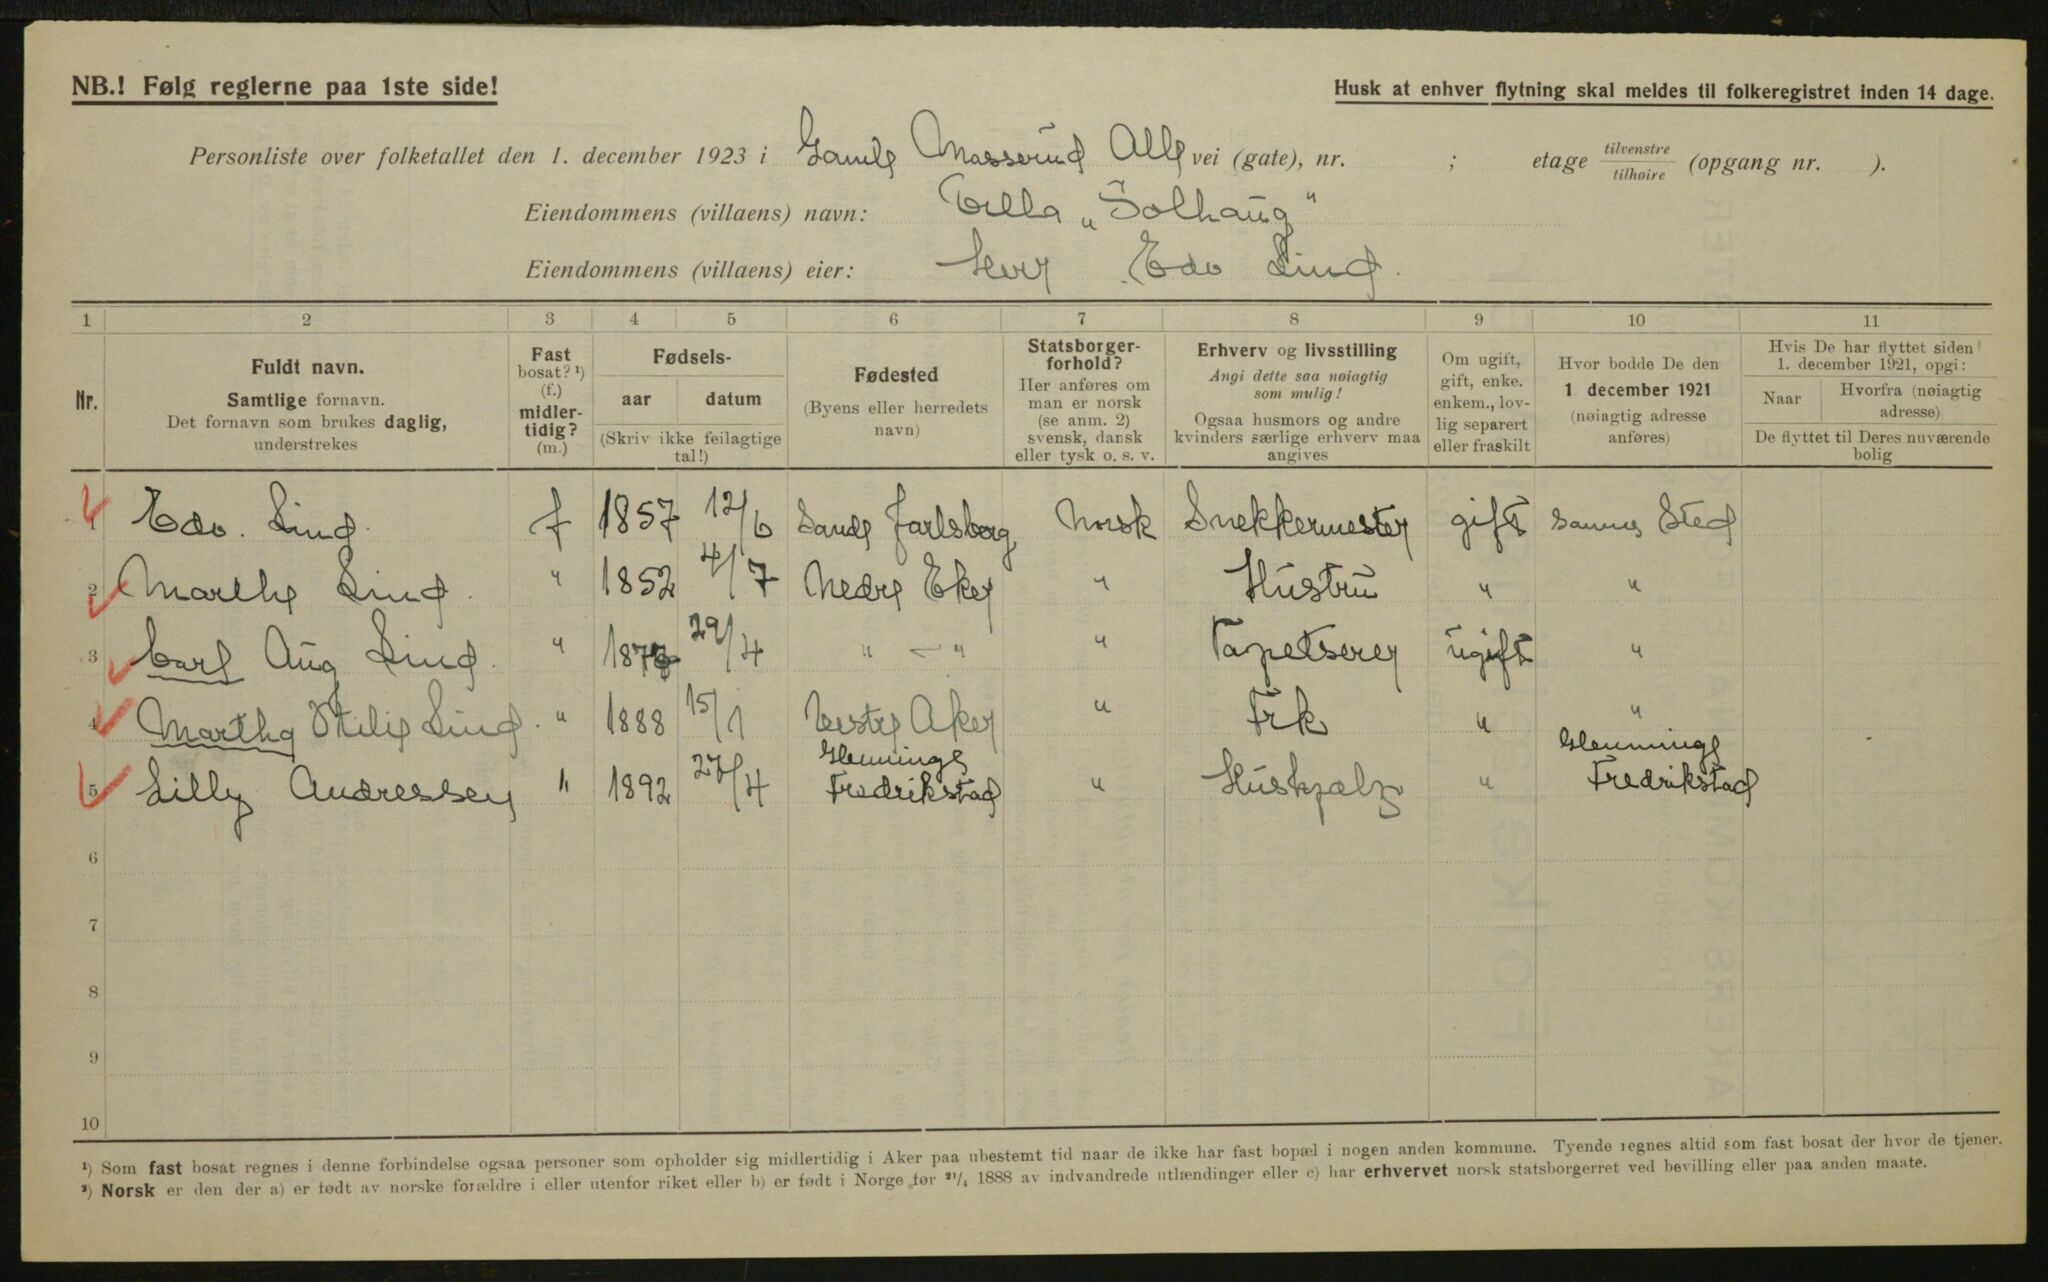 NB.! Følg reglerne paa 1ste side!
Husk at enhver flytning skal meldes til folkeregistret inden 14 dage.
Personliste over folketallet den 1. december 1923 i Gamle Masserud Alle vei (gate), nr. ; etage tilvenstre tilhøire (opgang nr. ).
Eiendommens (villaens) navn: Villa „Solhaug"
Eiendommens (villaens) eier: Herr Edv Lind.
1 2 3 4 5 6 7 8 9 10 11
Nr.
Fuldt navn.
Samtlige fornavn.
Det fornavn som brukes daglig,
understrekes
Fast
bosat? ¹)
(f.)
midler-
tidig?
(m.)
Fødsels-
aar datum
(Skriv ikke feilagtige
tal!)
Fødested
(Byens eller herredets
navn)
Statsborger-
forhold?
Her anføres om
man er norsk
(se anm. 2)
svensk, dansk
eller tysk o. s. v.
Erhverv og livsstilling
Angi dette saa nøiagtig
som mulig!
Ogsaa husmors og andre
kvinders særlige erhverv maa
angives
Om ugift,
gift, enke.
enkem., lov-
lig separert
eller fraskilt
Hvor bodde De den
1 december 1921
(nøiagtig adresse
anføres)
Hvis De har flyttet siden
1. december 1921, opgi:
Naar Hvorfra (nøiagtig
adresse)
De flyttet til Deres nuværende
bolig
1 Edv. Lind. f 1857 12/6 Sande Jarlsberg Norsk Snekkermester gift samme Sted
2 Marthe Lind. " 1852 4/7 Nedre Eker " Hustru " "
3 Carl Aug Lind. " 29/4 " — " " Tapetserer ugift "
4 Martha Otilie Lind. " 1888 15/1 Vestre Aker " Frk " "
5 Lilly Andressen " 1892 27/4 Glemminge Fredrikstad " Hushjælp " Glemminge Fredrikstad
6
7
8
9
10
¹) Som fast bosat regnes i denne forbindelse ogsaa personer som opholder sig midlertidig i Aker paa ubestemt tid naar de ikke har fast bopæl i nogen anden kommune. Tyende regnes altid som fast bosat der hvor de tjener.
²) Norsk er den der a) er født av norske forældre i eller utenfor riket eller b) er født i Norge før ²¹/₄ 1888 av indvandrede utlændinger eller c) har erhvervet norsk statsborgerret ved bevilling eller paa anden maate.